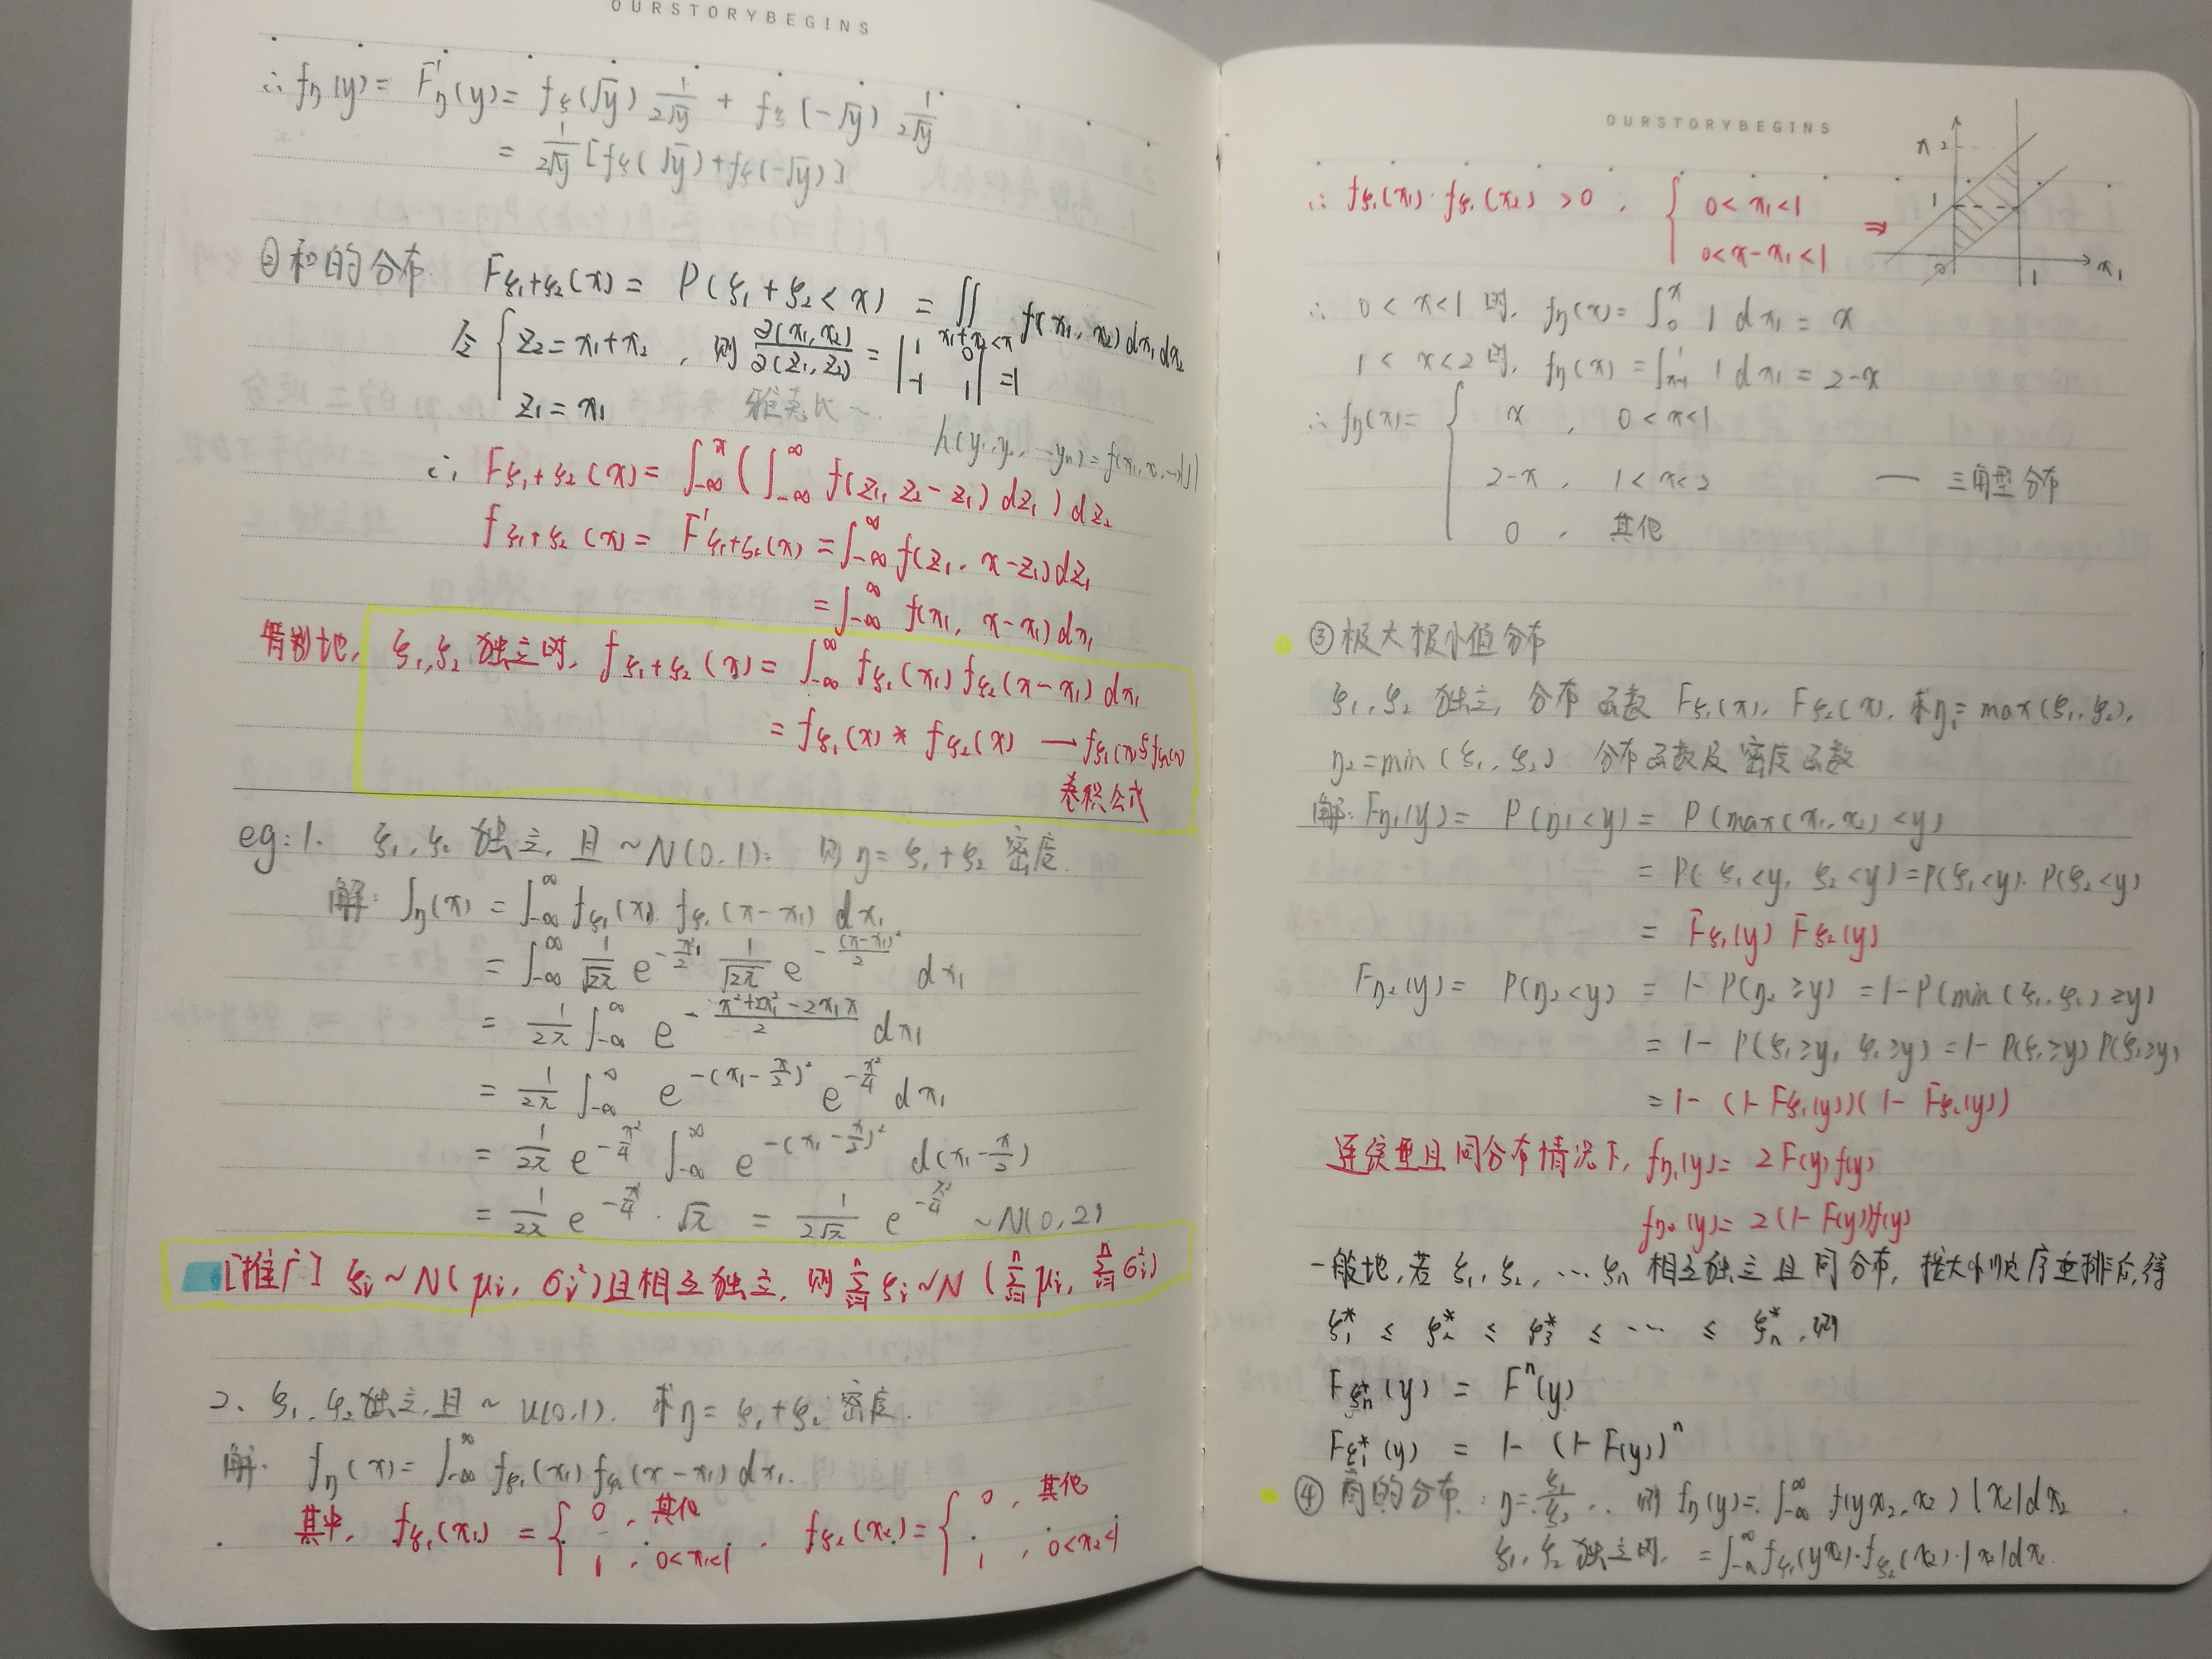 OURSTORYBEGINS
∴ fη(y) = F'η(y) = fξ(√y) 1/(2√y) + fξ(-√y) 1/(2√y)
= 1/(2√y) [fξ(√y)+fξ(-√y)]
②和的分布 Fξ₁+ξ₂(x) = P(ξ₁+ξ₂<x) = ∬_{x₁+x₂<x} f(x₁,x₂)dx₁dx₂
令 { z₂=x₁+x₂ , 则 ∂(x₁,x₂)/∂(z₁,z₂) = |1 0; -1 1| =1
z₁=x₁ 雅克比~
h(y₁,y₂,…yₙ)=f(x₁,x₂,…)|J|
∴ Fξ₁+ξ₂(x) = ∫_{-∞}^{x} (∫_{-∞}^{∞} f(z₁, z₂-z₁) dz₁) dz₂
fξ₁+ξ₂(x) = F'ξ₁+ξ₂(x) = ∫_{-∞}^{∞} f(z₁, x-z₁)dz₁
= ∫_{-∞}^{∞} f(x₁, x-x₁)dx₁
特别地, ξ₁,ξ₂ 独立时, fξ₁+ξ₂(x) = ∫_{-∞}^{∞} fξ₁(x₁) fξ₂(x-x₁) dx₁
= fξ₁(x) * fξ₂(x) — fξ₁(x)与fξ₂(x)
卷积公式
eg: 1. ξ₁,ξ₂ 独立, 且~N(0,1). 则η=ξ₁+ξ₂ 密度.
解: fη(x) = ∫_{-∞}^{∞} fξ₁(x₁) fξ₂(x-x₁) dx₁
= ∫_{-∞}^{∞} 1/√2π e^{-x₁²/2} 1/√2π e^{-(x-x₁)²/2} dx₁
= 1/2π ∫_{-∞}^{∞} e^{-(x²+2x₁²-2x₁x)/2} dx₁
= 1/2π ∫_{-∞}^{∞} e^{-(x₁-x/2)²} e^{-x²/4} dx₁
= 1/2π e^{-x²/4} ∫_{-∞}^{∞} e^{-(x₁-x/2)²} d(x₁-x/2)
= 1/2π e^{-x²/4} · √π = 1/(2√π) e^{-x²/4} ~N(0,2)
[推广] ξᵢ~N(μᵢ, σᵢ²)且相互独立, 则 Σ_{i=1}^{n} ξᵢ ~N (Σ_{i=1}^{n} μᵢ, Σ_{i=1}^{n} σᵢ²)
2、ξ₁,ξ₂独立,且~U(0,1). 求η=ξ₁+ξ₂密度.
解: fη(x) = ∫_{-∞}^{∞} fξ₁(x₁) fξ₂(x-x₁) dx₁.
其中, fξ₁(x₁) = { 0 , 其他 ; 1 , 0<x₁<1 , fξ₂(x₂) = { 0 , 其他 ; 1 , 0<x₂<1
OURSTORYBEGINS
∴ fξ₁(x₁)·fξ₁(x₂) >0 , { 0<x₁<1 ; 0<x-x₁<1 ⇒
x 2 1 0 1 x₁
∴ 0<x<1 时, fη(x) = ∫_0^x 1 dx₁ = x
1<x<2 时, fη(x) = ∫_{x-1}^{1} 1 dx₁ = 2-x
∴ fη(x) = { x , 0<x<1
2-x , 1<x<2 — 三角型分布
0 , 其他
③极大极小值分布
ξ₁,ξ₂ 独立, 分布函数 Fξ₁(x), Fξ₂(x), 求η₁=max(ξ₁,ξ₂),
η₂=min(ξ₁,ξ₂) 分布函数及密度函数
解: Fη₁(y) = P(η₁<y) = P(max(x₁,x₂)<y)
= P(ξ₁<y, ξ₂<y) = P(ξ₁<y)·P(ξ₂<y)
= Fξ₁(y) Fξ₂(y)
Fη₂(y) = P(η₂<y) = 1-P(η₂≥y) = 1-P(min(ξ₁,ξ₂)≥y)
= 1-P(ξ₁≥y, ξ₂≥y) = 1-P(ξ₁≥y)P(ξ₂≥y)
= 1-(1-Fξ₁(y))(1-Fξ₂(y))
连续型且同分布情况下, fη₁(y) = 2F(y)f(y)
fη₂(y) = 2(1-F(y))f(y)
一般地,若 ξ₁,ξ₂,…ξₙ 相互独立且同分布, 按大小顺序重排后,得
ξ₁* ≤ ξ₂* ≤ ξ₃* ≤ … ≤ ξₙ*, 则
Fξₙ*(y) = Fⁿ(y)
Fξ₁*(y) = 1-(1-F(y))ⁿ
④商的分布: η=ξ₁/ξ₂, 则 fη(y) = ∫_{-∞}^{∞} f(yx₂,x₂)|x₂|dx₂
ξ₁,ξ₂ 独立时, = ∫_{-∞}^{∞} fξ₁(yx₂)·fξ₂(x₂)·|x₂|dx₂